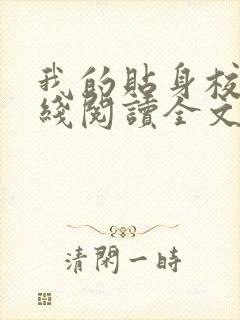 我的貼身校
綫閱讀全文
清閑一時